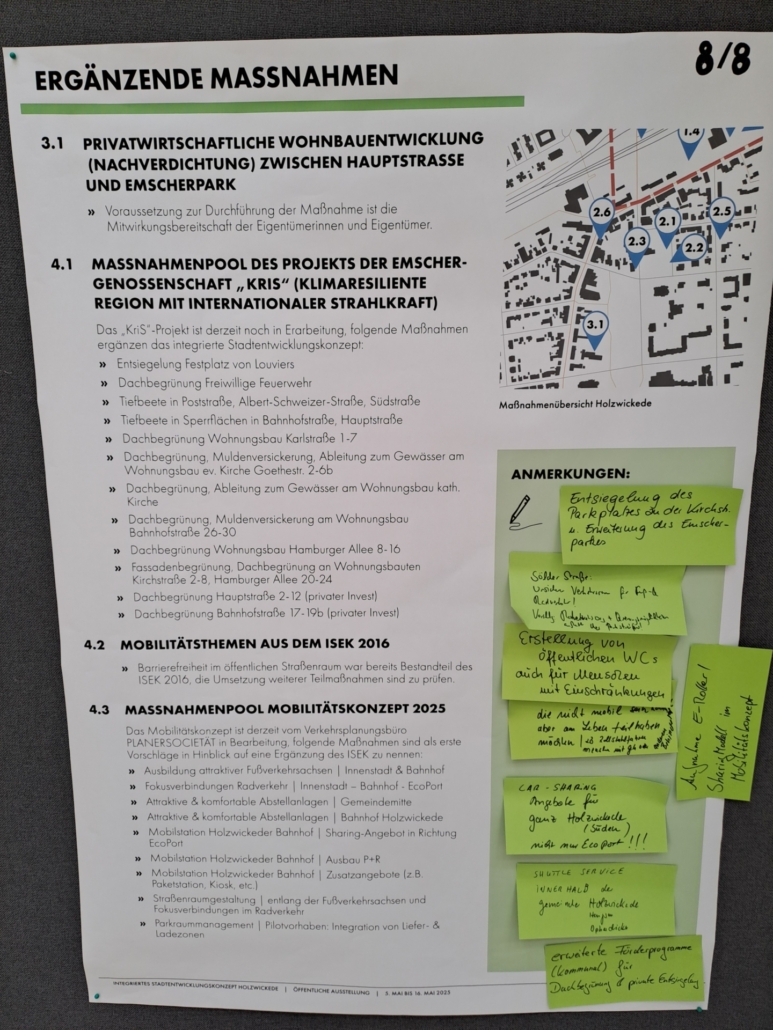 8/8
ERGÄNZENDE MASSNAHMEN
3.1 PRIVATWIRTSCHAFTLICHE WOHNBAUENTWICKLUNG
(NACHVERDICHTUNG) ZWISCHEN HAUPTSTRASSE
UND EMSCHERPARK
» Voraussetzung zur Durchführung der Maßnahme ist die
Mitwirkungsbereitschaft der Eigentümerinnen und Eigentümer.
4.1 MASSNAHMENPOOL DES PROJEKTS DER EMSCHER-
GENOSSENSCHAFT „KRIS“ (KLIMARESILIENTE
REGION MIT INTERNATIONALER STRAHLKRAFT)
Das „KriS“-Projekt ist derzeit noch in Erarbeitung, folgende Maßnahmen
ergänzen das integrierte Stadtentwicklungskonzept:
» Entsiegelung Festplatz von Louviers
» Dachbegrünung Freiwillige Feuerwehr
» Tiefbeete in Poststraße, Albert-Schweizer-Straße, Südstraße
» Tiefbeete in Sperrflächen in Bahnhofstraße, Hauptstraße
» Dachbegrünung Wohnungsbau Karlstraße 1-7
» Dachbegrünung, Muldenversickerung, Ableitung zum Gewässer am
Wohnungsbau ev. Kirche Goethestr. 2-6b
» Dachbegrünung, Ableitung zum Gewässer am Wohnungsbau kath.
Kirche
» Dachbegrünung, Muldenversickerung am Wohnungsbau
Bahnhofstraße 26-30
» Dachbegrünung Wohnungsbau Hamburger Allee 8-16
» Fassadenbegrünung, Dachbegrünung an Wohnungsbauten
Kirchstraße 2-8, Hamburger Allee 20-24
» Dachbegrünung Hauptstraße 2-12 (privater Invest)
» Dachbegrünung Bahnhofstraße 17-19b (privater Invest)
4.2 MOBILITÄTSTHEMEN AUS DEM ISEK 2016
» Barrierefreiheit im öffentlichen Straßenraum war bereits Bestandteil des
ISEK 2016, die Umsetzung weiterer Teilmaßnahmen sind zu prüfen.
4.3 MASSNAHMENPOOL MOBILITÄTSKONZEPT 2025
Das Mobilitätskonzept ist derzeit vom Verkehrsplanungsbüro
PLANERSOCIETÄT in Bearbeitung, folgende Maßnahmen sind als erste
Vorschläge in Hinblick auf eine Ergänzung des ISEK zu nennen:
» Ausbildung attraktiver Fußverkehrsachsen | Innenstadt & Bahnhof
» Fokusverbindungen Radverkehr | Innenstadt – Bahnhof - EcoPort
» Attraktive & komfortable Abstellanlagen | Gemeindemitte
» Attraktive & komfortable Abstellanlagen | Bahnhof Holzwickede
» Mobilstation Holzwickeder Bahnhof | Sharing-Angebot in Richtung
EcoPort
» Mobilstation Holzwickeder Bahnhof | Ausbau P+R
» Mobilstation Holzwickeder Bahnhof | Zusatzangebote (z.B.
Paketstation, Kiosk, etc.)
» Straßenraumgestaltung | entlang der Fußverkehrsachsen und
Fokusverbindungen im Radverkehr
» Parkraummanagement | Pilotvorhaben: Integration von Liefer- &
Ladezonen
INTEGRIERTES STADTENTWICKLUNGSKONZEPT HOLZWICKEDE | ÖFFENTLICHE AUSSTELLUNG | 5. MAI BIS 16. MAI 2025
1.4
2.6
2.1
2.5
2.3
2.2
3.1
Maßnahmenübersicht Holzwickede
ANMERKUNGEN:
Entsiegelung des
Parkplatzes an der Kirchstr.
u. Erweiterung des Emscher-
parkes
Sölder Straße:
Erstellung von
öffentlichen WCs
auch für Menschen
mit Einschränkungen
die nicht mobil sind
aber am Leben teilhaben
möchten
Aufnahme E-Roller!
Sharing Modell im
Mobilitätskonzept
CAR - SHARING
Angebote für
ganz Holzwickede
(Süden)
nicht nur EcoPort!!!
SHUTTLE SERVICE
INNERHALB der
gemeinde Holzwickede
Hengsen
Opherdicke
erweiterte Förderprogramme
(kommunal) für
Dachbegrünung & private Entsiegelung